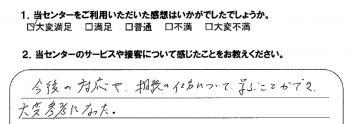 1. 当センターをご利用いただいた感想はいかがでしたでしょうか。
☑大変満足 □満足 □普通 □不満 □大変不満
2. 当センターのサービスや接客について感じたことをお教えください。
今後の対応や、相談の仕方について、学ぶことができ、
大変参考になった。